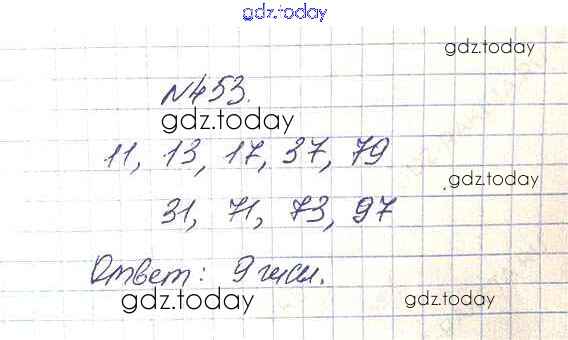 gdz.today
gdz.today
№453.
gdz.today
11, 13, 17, 37, 79
gdz.today
31, 71, 73, 97
Ответ: 9 чисел.
gdz.today
gdz.today